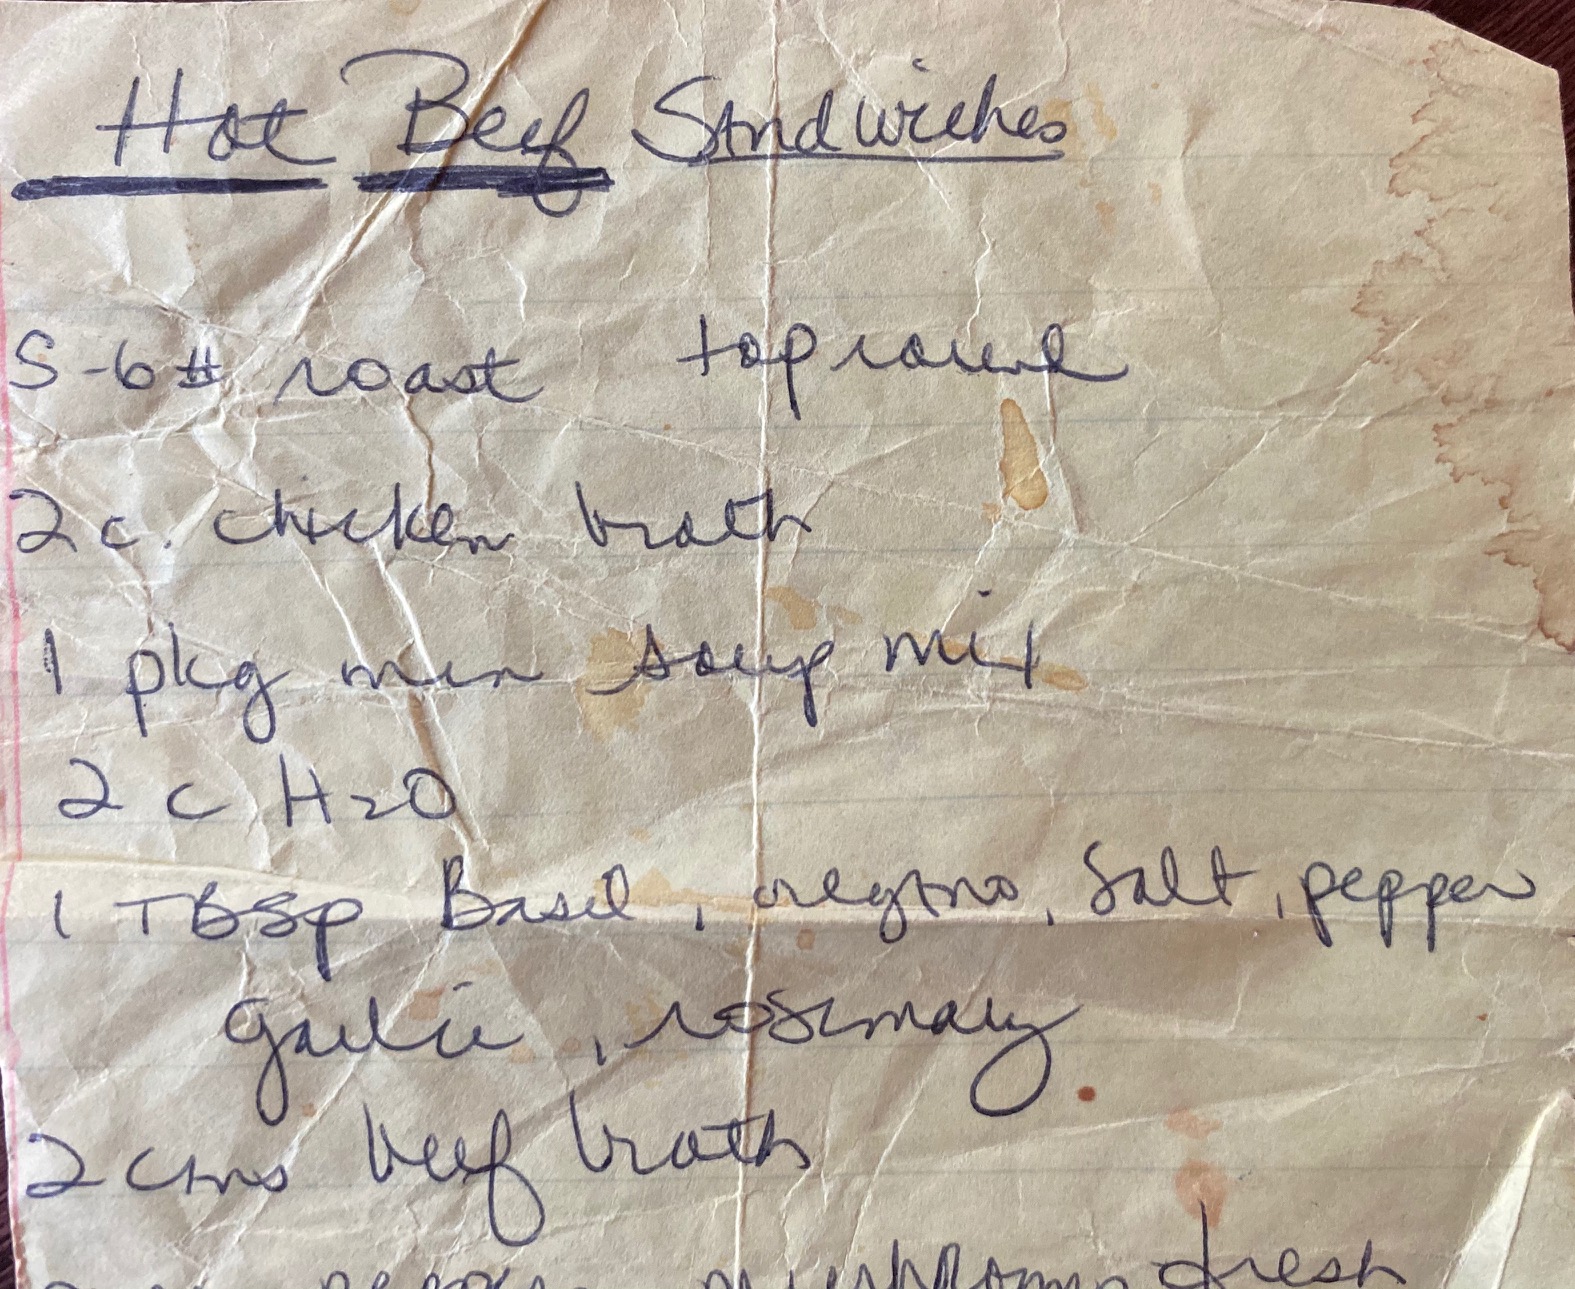 Hot Beef Sandwiches
5-6# roast top round
2 c. chicken broth
1 pkg onion soup mix
2 c H2O
1 TBSp Basil, oregano, Salt, pepper
garlic, rosemary
2 cans beef broth
mushrooms fresh